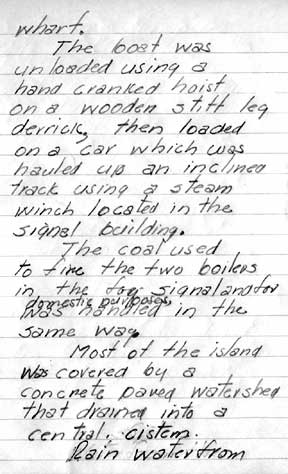 wharf.
The boat was
unloaded using a
hand cranked hoist
on a wooden stiff leg
derrick, then loaded
on a car which was
hauled up an inclined
track using a steam
winch located in the
signal building.
The coal used
to fire the two boilers
in the fog signal and for
domestic purposes,
was handled in the
same way.
Most of the island
was covered by a
concrete paved watershed
that drained into a
central, cistern.
Rain water from